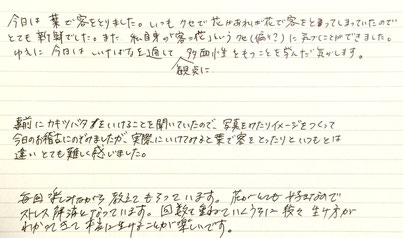 今日は葉で客をとりました。いつもクセで花があれば花で客をとってしまっていたので
とても新鮮でした。また私自身の"客=花"というクセ(偏り?)に気づくことができました。
ゆえに今日はいけばなを通して多面性をもつことを学んだ気がします。
観点に
事前にカキツバタをいけることを聞いていたので、写真をみたりイメージをつくって
今日のお稽古にのぞみましたが、実際にいけてみると葉で客をとったりといつもとは
違いとても難しく感じました。
毎回楽しみながら教えてもらっています。花がとても好きなので
ストレス解消となっています。回数を重ねていくうちに段々生け方が
わかってきて本当に生けることが楽しいです。